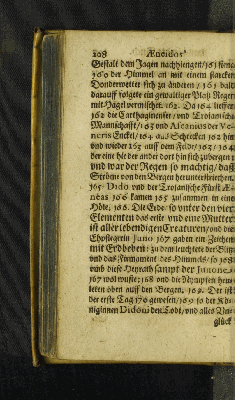 208 Æneidos
Gestalt dem Jagen nachhiengen/159 fieng
160 der Himmel an mit einem starcken
Donnerwetter sich zu änderen / 161 bald
darauff folgete ein gewaltiger Platz Regen
mit Hagel vermischet. 162. Da 164 lieffen
162 die Carthaginenser / und Trojanische
Mannschafft / 163 und Ascanius der Ve-
neris Enckel / 164 auß Schrecken 162 hin
und wieder 163 auff dem Felde / 162 / 164
der eine hie der ander dort hin sich zubergen:
und war der Regen so mächtig / daß
Ströme von den Bergen herunterschiessen.
165 Dido und der Trojanische Fürst Æ-
neas 166 kamen 165 zusammen in einer
Höle. 166. Die Erde / so unter den vier
Elementen das erste und eine Mutter
ist aller lebendigen Creaturen / und die
Ehestegerin Juno 167 gaben ein Zeichen
mit Erdbeben: zu dem leuchtete der Blitz
und das Firmament des Himmels / so 168
umb diese Heyrath sampt der Junone
167 wol wuste: 168 und die Nymphen heu-
leten oben auff den Bergen. 169. Der ist
der erste Tag 170 gewesen / 169 so der Kö-
niginnen Didoni den Todt / und alles Un-
glück